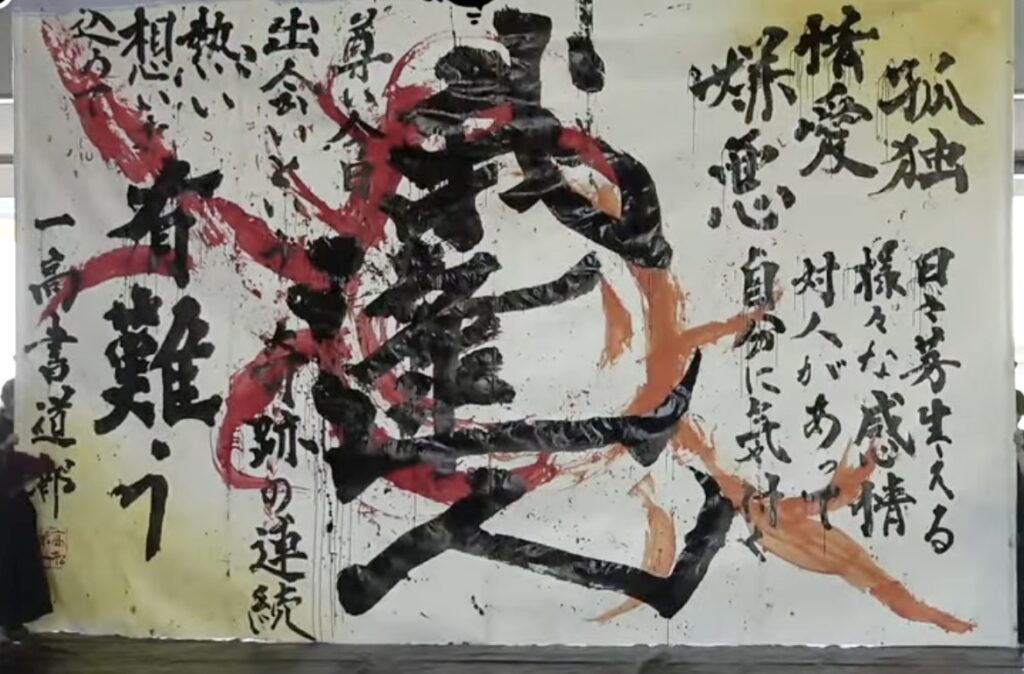 孤独
情愛
嫌悪
日々芽生える
様々な感情
対人があって
自分に気付く
尊い今日
出会いという奇跡の連続
熱い
想いを
込めて
有難う
一高書道部